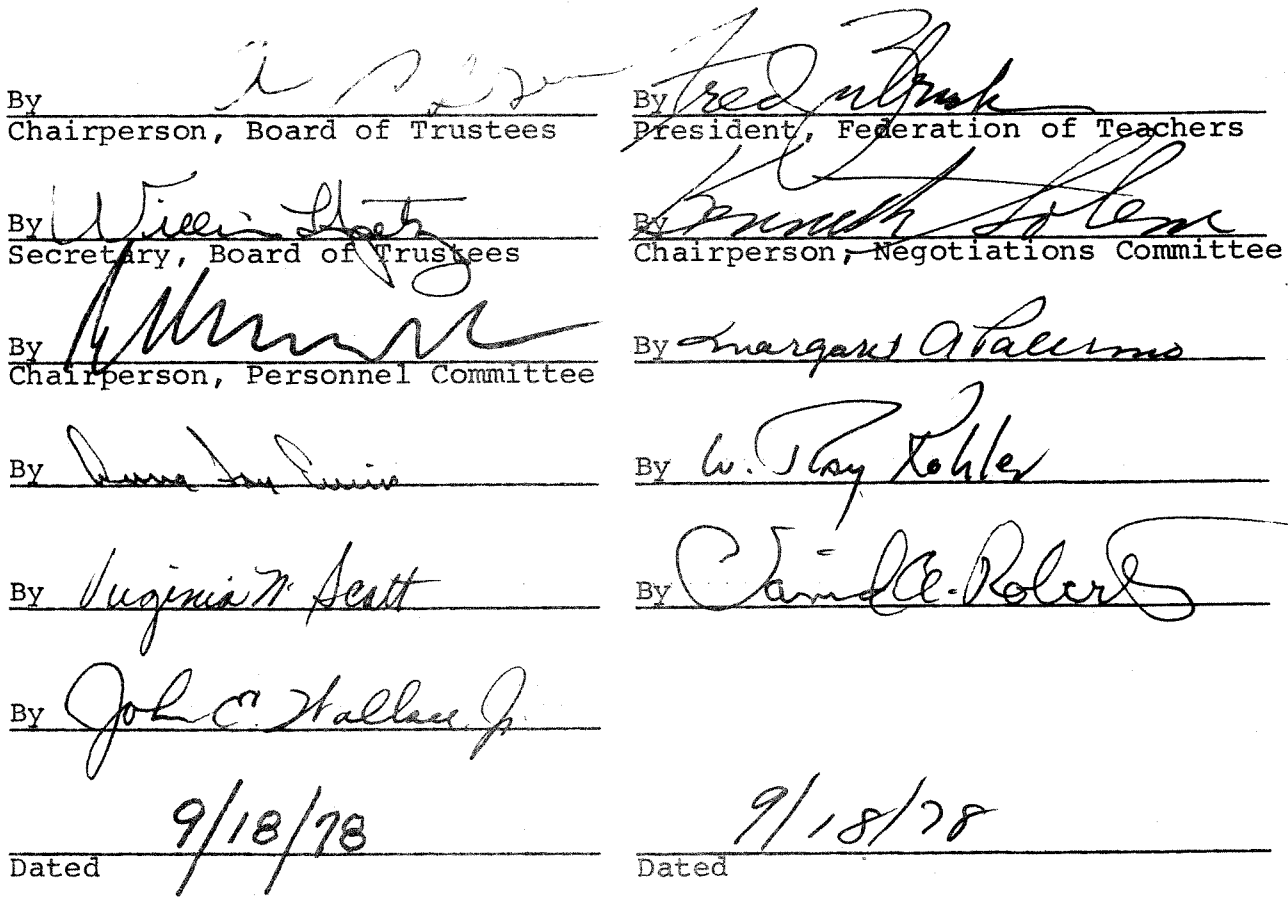 By
Chairperson, Board of Trustees
By William
Secretary, Board of Trustees
By
Chairperson, Personnel Committee
By
By Virginia N. Scott
By John E. Wallace Jr.
9/18/78
Dated
By Fred
President, Federation of Teachers
By Kenneth Solem
Chairperson, Negotiations Committee
By Margaret A Palermo
By W. Roy Kohler
By David A. Roberts
9/18/78
Dated